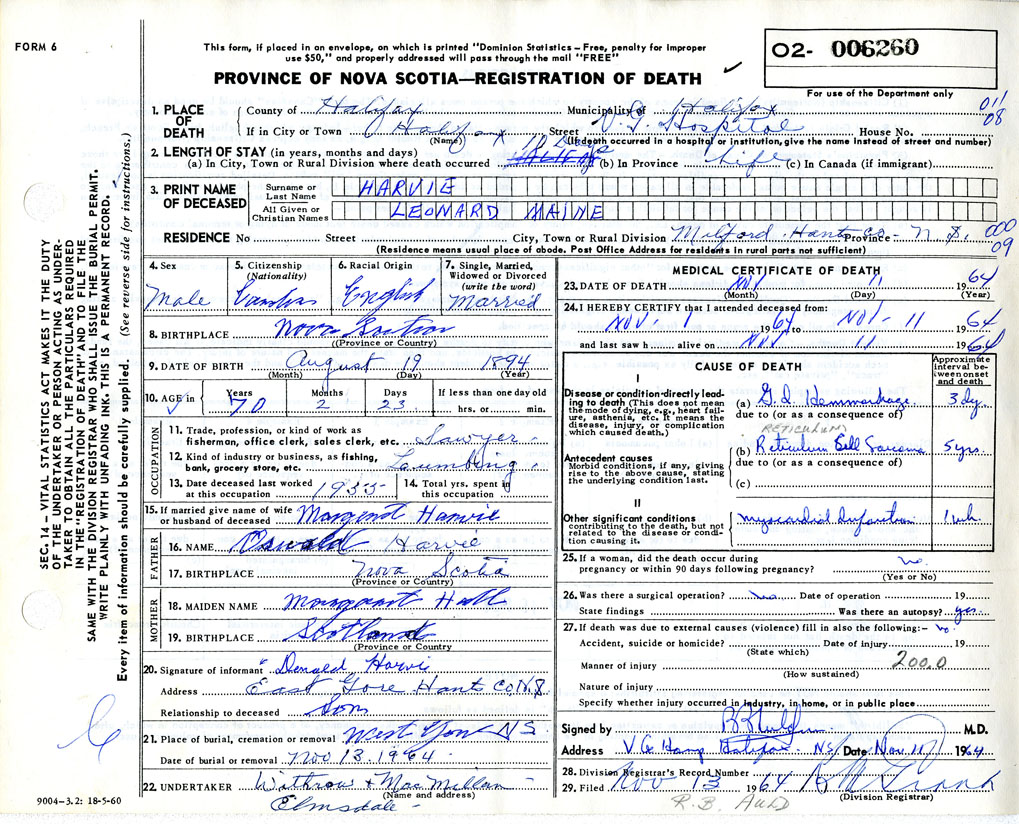 FORM 6
This form, if placed in an envelope, on which is printed "Dominion Statistics – Free, penalty for improper
use $50," and properly addressed will pass through the mail "FREE"
PROVINCE OF NOVA SCOTIA—REGISTRATION OF DEATH
O2- 006260
For use of the Department only
011
08
1. PLACE OF DEATH
County of Halifax Municipality of Halifax
If in City or Town Halifax Street V.G. Hospital House No.
(Name) (If death occurred in a hospital or institution, give the name instead of street and number)
2. LENGTH OF STAY (in years, months and days)
(a) In City, Town or Rural Division where death occurred (b) In Province Life (c) In Canada (if immigrant)
3. PRINT NAME OF DECEASED
Surname or Last Name HARVIE
All Given or Christian Names LEONARD MAINE
RESIDENCE No Street City, Town or Rural Division Milford Hants Co Province N.S.
000
09
(Residence means usual place of abode. Post Office Address for residents in rural parts not sufficient)
4. Sex Male
5. Citizenship (Nationality)
6. Racial Origin English
7. Single, Married, Widowed or Divorced (write the word) Married
8. BIRTHPLACE Nova Scotia
(Province or Country)
9. DATE OF BIRTH August 19 1894
(Month) (Day) (Year)
10. AGE in Years 70 Months 2 Days 23 If less than one day old hrs. or min.
OCCUPATION
11. Trade, profession, or kind of work as
fisherman, office clerk, sales clerk, etc. Sawyer
12. Kind of industry or business, as fishing,
bank, grocery store, etc. Lumbering
13. Date deceased last worked at this occupation 1955
14. Total yrs. spent in this occupation
15. If married give name of wife or husband of deceased Margaret Harvie
FATHER
16. NAME Oswald Harvie
17. BIRTHPLACE Nova Scotia
(Province or Country)
MOTHER
18. MAIDEN NAME Margaret Hall
19. BIRTHPLACE Scotland
(Province or Country
20. Signature of informant "Donald Harvie
Address East Gore Hants Co N.S
Relationship to deceased Son
21. Place of burial, cremation or removal West Gore N S.
Date of burial or removal Nov 13, 1964
22. UNDERTAKER Withrow & MacMillan
(Name and address)
Elmsdale
9004–3.2: 18-5-60
MEDICAL CERTIFICATE OF DEATH
23. DATE OF DEATH Nov 11 1964
(Month) (Day) (Year)
24. I HEREBY CERTIFY that I attended deceased from:
Nov - 1 1964 to Nov - 11 1964
and last saw h alive on Nov 11 1964
CAUSE OF DEATH
Approximate interval between onset and death
I
Disease or condition directly leading to death (This does not mean the mode of dying, e.g., heart failure, asthenia, etc. It means the disease, injury, or complication which caused death.)
(a) G.I. Hemmorhage 3 dy.
due to (or as a consequence of)
RETICULUM
Antecedent causes
Morbid conditions, if any, giving rise to the above cause, stating the underlying condition last.
(b) Reticulum Cell Sarcoma 5 yrs
due to (or as a consequence of)
(c)
II
Other significant conditions
contributing to the death, but not related to the disease or condition causing it.
Myocardial Infarction 1 wk
25. If a woman, did the death occur during
pregnancy or within 90 days following pregnancy? no.
(Yes or No)
26. Was there a surgical operation? no. Date of operation 19
State findings Was there an autopsy? yes.
27. If death was due to external causes (violence) fill in also the following:- no.
Accident, suicide or homicide? Date of injury 19
(State which)
Manner of injury 200.0
(How sustained)
Nature of injury
Specify whether injury occurred in industry, in home, or in public place
Signed by M.D.
Address V G Hosp Halifax NS Date Nov. 11 1964
28. Division Registrar's Record Number
29. Filed Nov 13 1964
(Division Registrar)
R.B. AULD
SEC. 14 – VITAL STATISTICS ACT MAKES IT THE DUTY
OF THE UNDERTAKER OR PERSON ACTING AS UNDER-
TAKER TO OBTAIN ALL THE PARTICULARS REQUIRED
IN THE "REGISTRATION OF DEATH" AND TO FILE THE
SAME WITH THE DIVISION REGISTRAR WHO SHALL ISSUE THE BURIAL PERMIT.
WRITE PLAINLY WITH UNFADING INK. THIS IS A PERMANENT RECORD.
Every item of information should be carefully supplied. (See reverse side for instructions.)